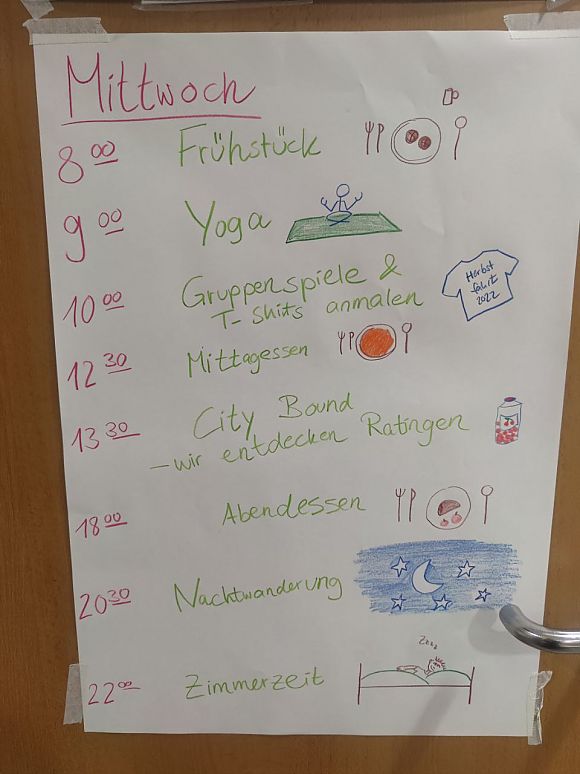 Mittwoch
8 00 Frühstück
9 00 Yoga
10 00 Gruppenspiele &
T-Shits anmalen
Herbst
fahrt
2022
12 30 Mittagessen
13 30 City Bound
- wir entdecken Ratingen
18 00 Abendessen
20 30 Nachtwanderung
Zzzz
22 00 Zimmerzeit